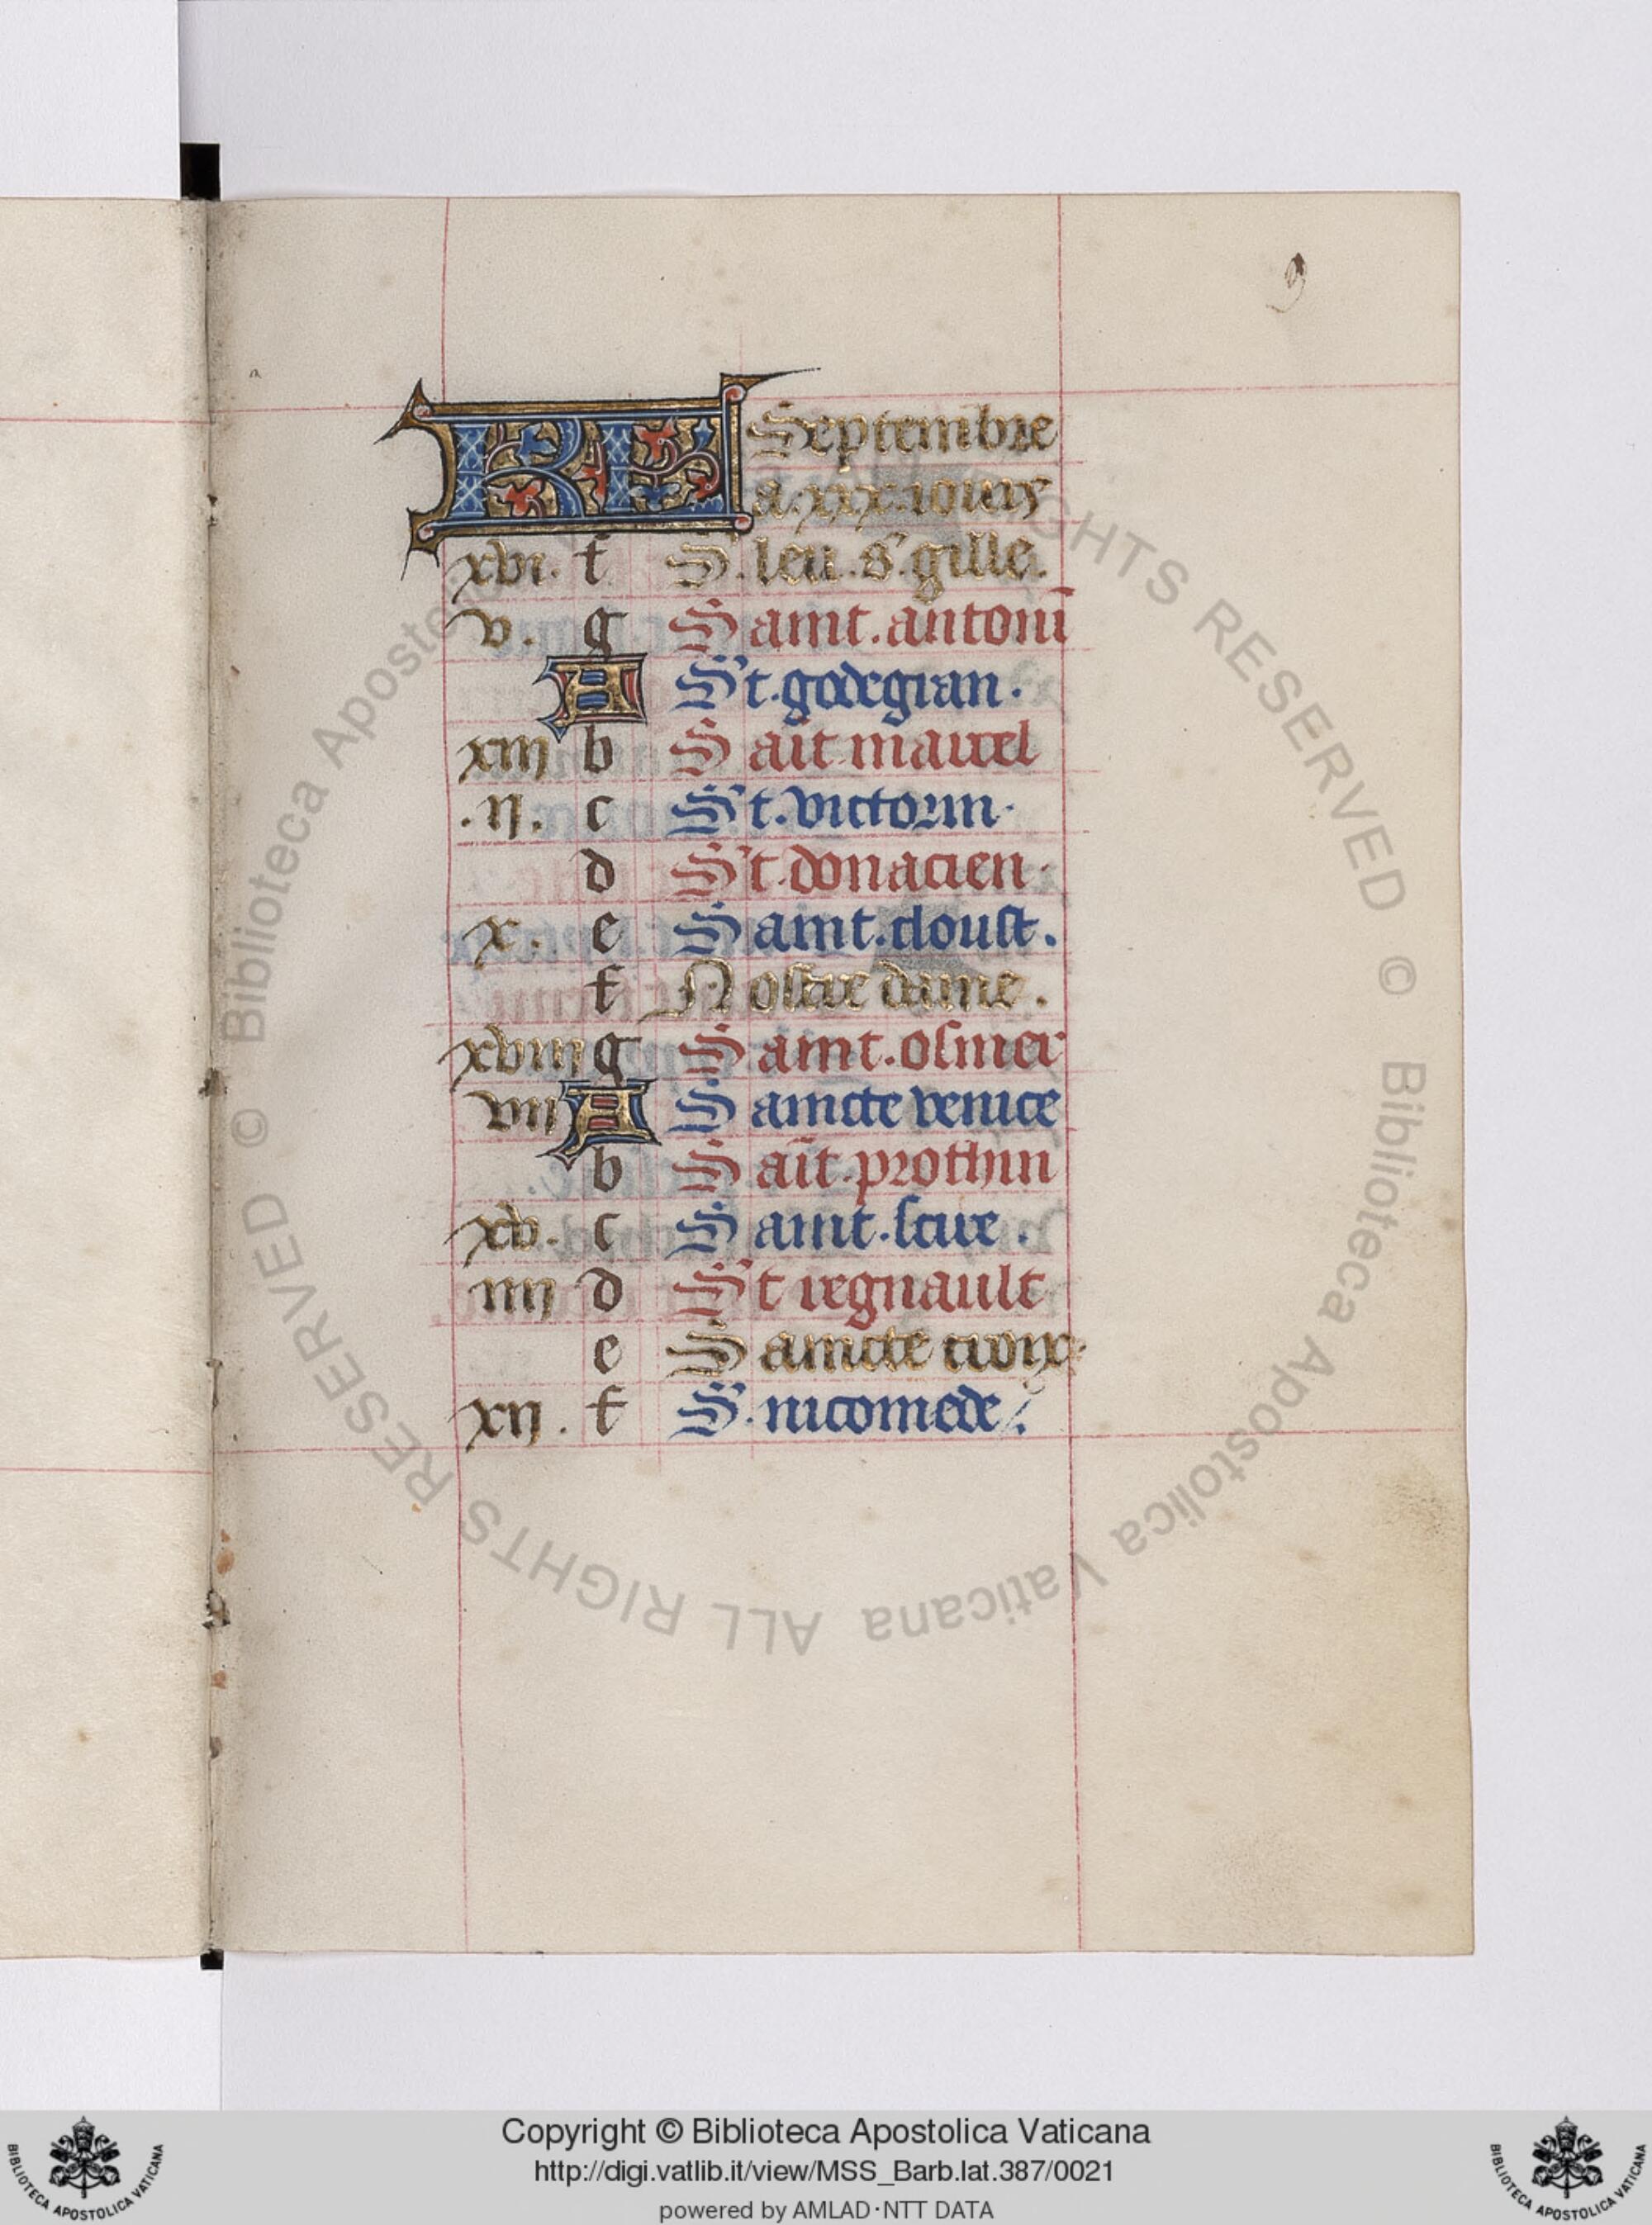 9
KL Septembre
a.xxx.iours
xvi. f S'. leu. s'. gille.
v. g Saint. antoni
A St. godegran.
xiii b Sait marcel
.ii. c St. victorin.
d St. donacien.
x. e Saint. cloust.
f Nostre dame.
xviii g Saint. osmer
vii A Saincte venice
b Sait. prothin
xv. c Saint. scire.
iiii d St regnault
e Saincte croix.
xii. f S'. nicomede.
Copyright © Biblioteca Apostolica Vaticana
http://digi.vatlib.it/view/MSS_Barb.lat.387/0021
powered by AMLAD·NTT DATA
BIBLIOTECA APOSTOLICA VATICANA
BIBLIOTECA APOSTOLICA VATICANA
© Biblioteca Apostolica Vaticana ALL RIGHTS RESERVED © Biblioteca Apostolica Vaticana ALL RIGHTS RESERVED